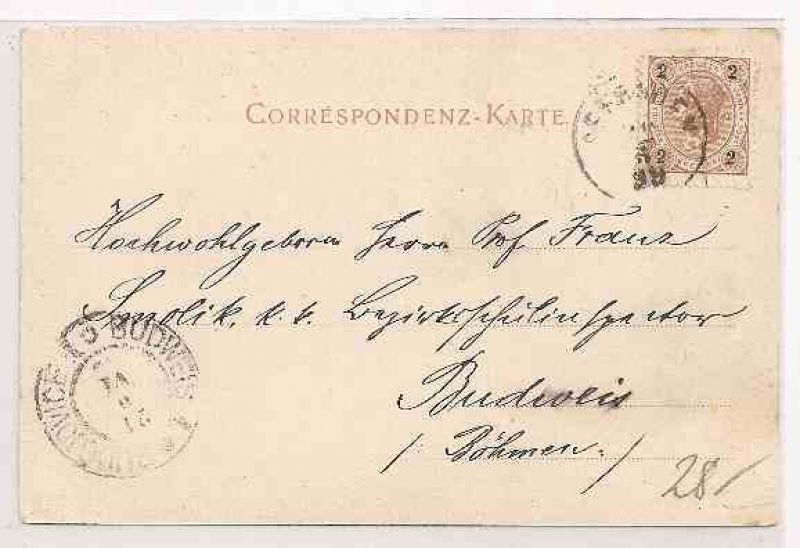 CORRESPONDENZ-KARTE
2 2
2 2
99
Hochwohlgeboren Herrn Prof. Franz
Smolik, k. k. Bezirksschulinspector
Budweis
/: Böhmen :/
BUDWEIS
28